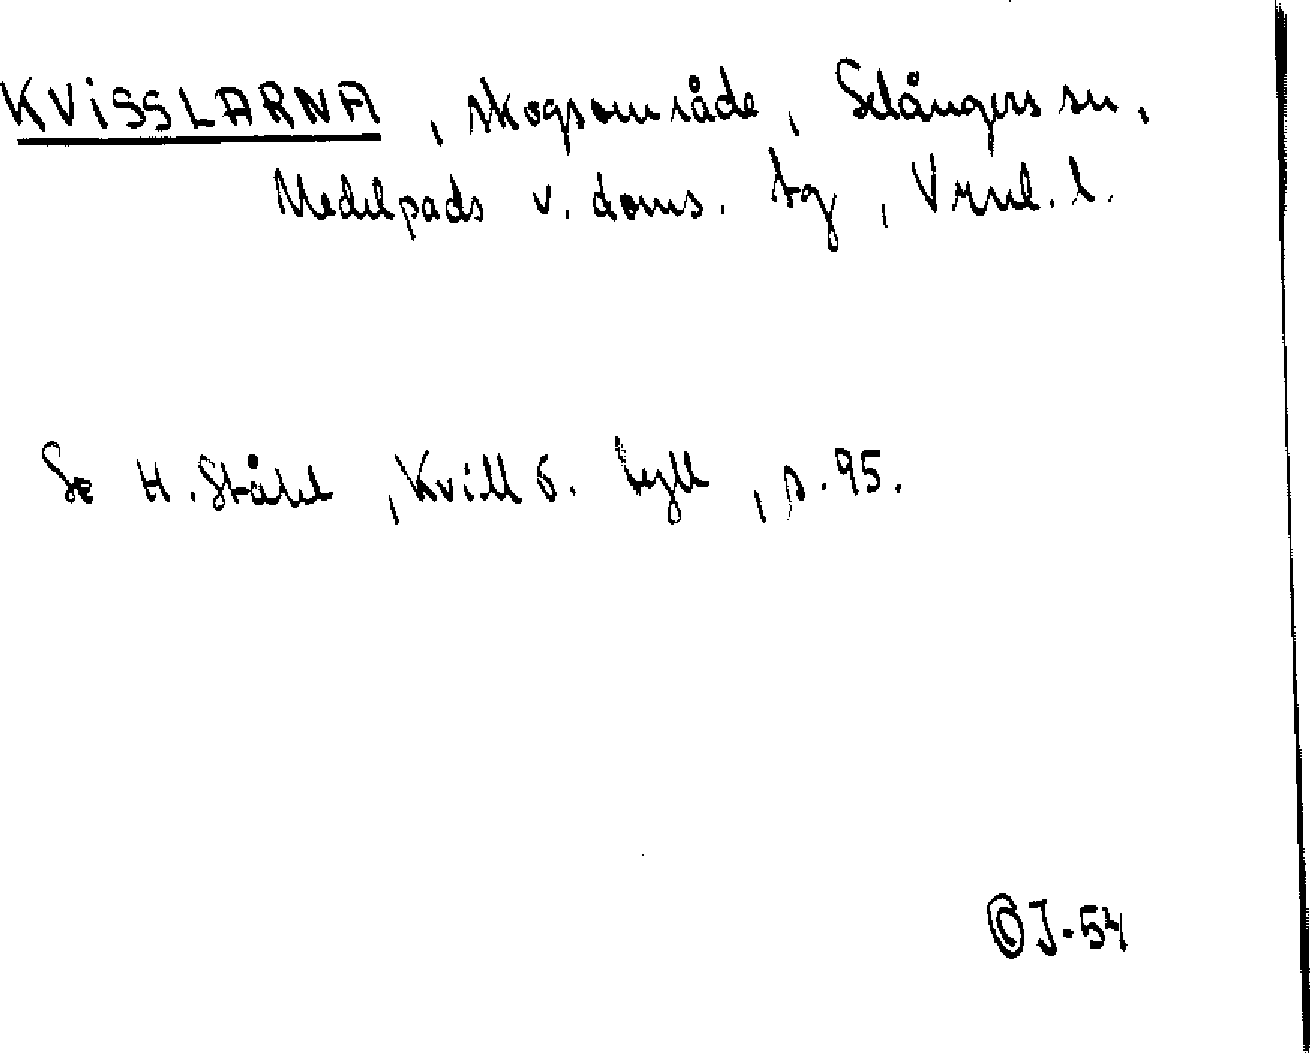 KVISSLARNA, skogsområde, Selångers sn,
Medelpads v. doms. tg, Vrnl. l.
Se H. Ståhl, Kvill o. tyll, s. 95.
©J-54